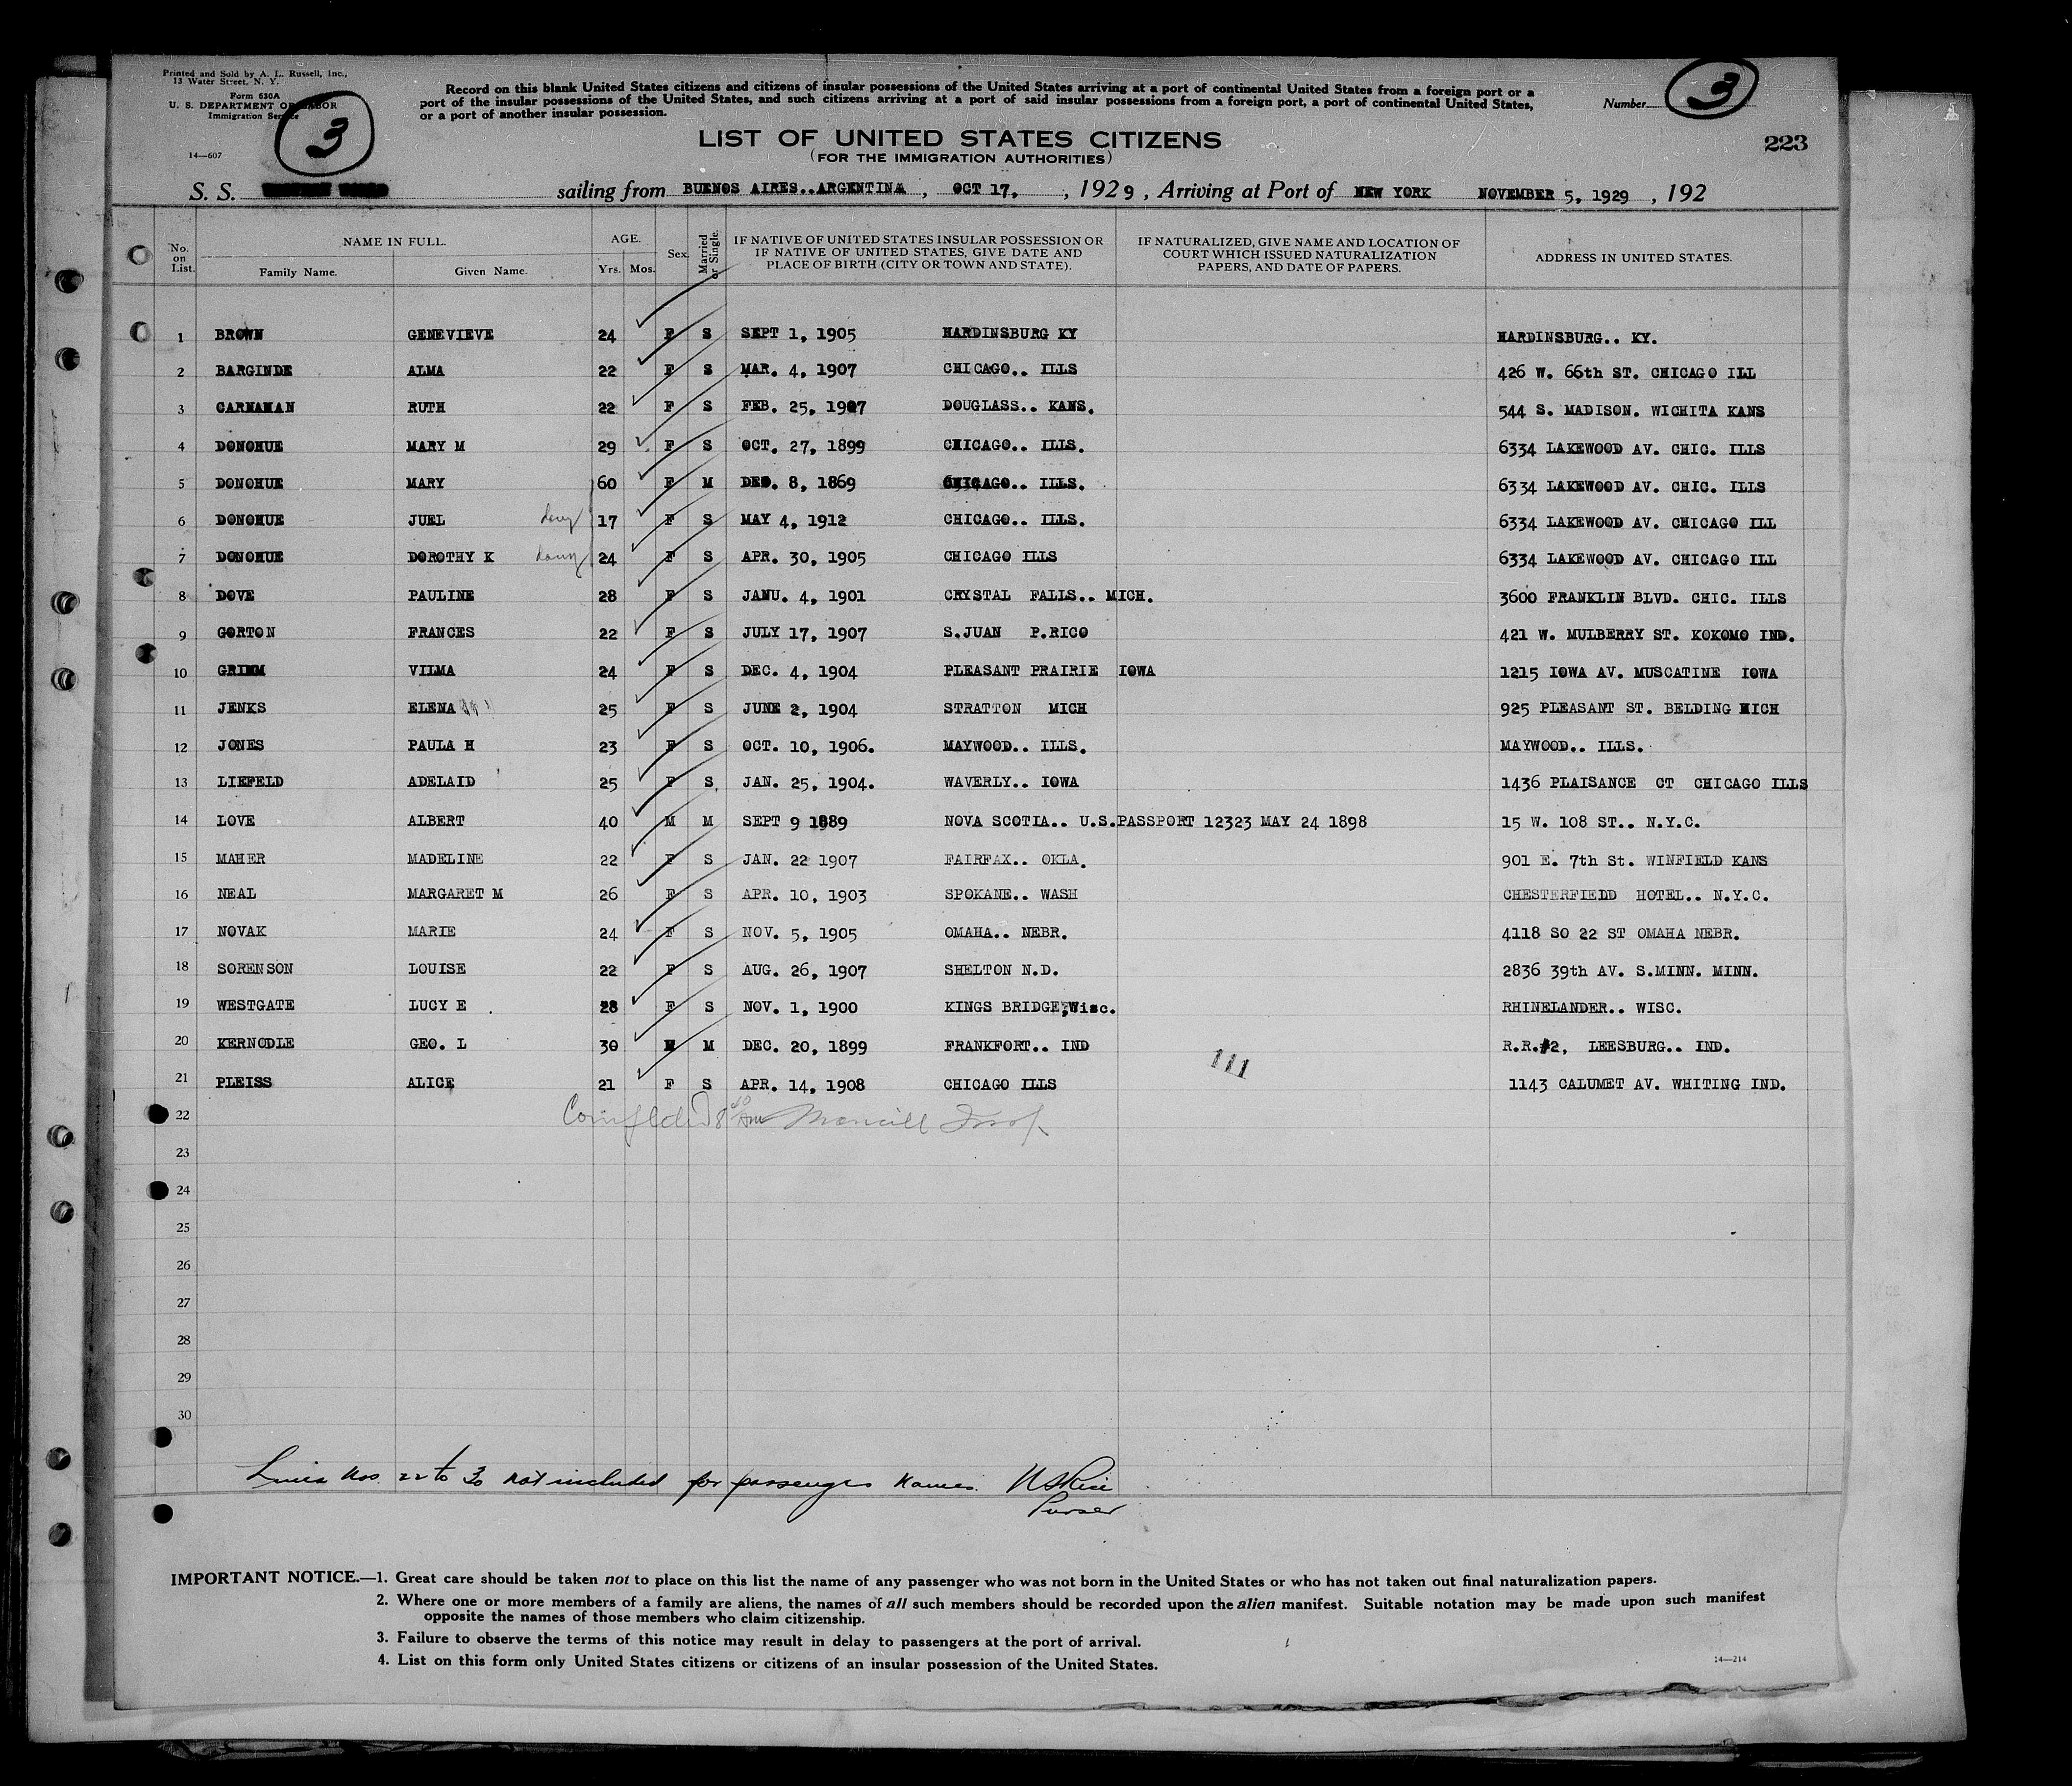 Printed and Sold by A. L. Russell, Inc.,
13 Water Street, N. Y.
Form 630A
U. S. DEPARTMENT OF LABOR
Immigration Service
14—607
3
Record on this blank United States citizens and citizens of insular possessions of the United States arriving at a port of continental United States from a foreign port or a
port of the insular possessions of the United States, and such citizens arriving at a port of said insular possessions from a foreign port, a port of continental United States,
or a port of another insular possession.
Number 3
LIST OF UNITED STATES CITIZENS
(FOR THE IMMIGRATION AUTHORITIES)
223
S. S. sailing from BUENOS AIRES..ARGENTINA, OCT 17, , 1929, Arriving at Port of NEW YORK NOVEMBER 5, 1929 , 192
No. on List. NAME IN FULL. Family Name. Given Name. AGE. Yrs. Mos. Sex Married or Single. IF NATIVE OF UNITED STATES INSULAR POSSESSION OR IF NATIVE OF UNITED STATES, GIVE DATE AND PLACE OF BIRTH (CITY OR TOWN AND STATE). IF NATURALIZED, GIVE NAME AND LOCATION OF COURT WHICH ISSUED NATURALIZATION PAPERS, AND DATE OF PAPERS. ADDRESS IN UNITED STATES.
1 BROWN GENEVIEVE 24 F S SEPT 1, 1905 HARDINSBURG KY HARDINSBURG.. KY.
2 BARGINDE ALMA 22 F S MAR. 4, 1907 CHICAGO.. ILLS 426 W. 66th ST. CHICAGO ILL
3 CARNAHAN RUTH 22 F S FEB. 25, 1907 DOUGLASS.. KANS. 544 S. MADISON. WICHITA KANS
4 DONOHUE MARY M 29 F S OCT. 27, 1899 CHICAGO.. ILLS. 6334 LAKEWOOD AV. CHIC. ILLS
5 DONOHUE MARY 60 F M DEC. 8, 1869 CHICAGO.. ILLS. 6334 LAKEWOOD AV. CHIC. ILLS
6 DONOHUE JUEL 17 F S MAY 4, 1912 CHICAGO.. ILLS. 6334 LAKEWOOD AV. CHICAGO ILL
7 DONOHUE DOROTHY K 24 F S APR. 30, 1905 CHICAGO ILLS 6334 LAKEWOOD AV. CHICAGO ILL
8 DOVE PAULINE 28 F S JANU. 4, 1901 CRYSTAL FALLS.. MICH. 3600 FRANKLIN BLVD. CHIC. ILLS
9 GORTON FRANCES 22 F S JULY 17, 1907 S.JUAN P.RICO 421 W. MULBERRY ST. KOKOMO IND.
10 GRIMM VILMA 24 F S DEC. 4, 1904 PLEASANT PRAIRIE IOWA 1215 IOWA AV. MUSCATINE IOWA
11 JENKS ELENA 25 F S JUNE 2, 1904 STRATTON MICH 925 PLEASANT ST. BELDING MICH
12 JONES PAULA H 23 F S OCT. 10, 1906. MAYWOOD.. ILLS. MAYWOOD.. ILLS.
13 LIEFELD ADELAID 25 F S JAN. 25, 1904. WAVERLY.. IOWA 1436 PLAISANCE CT CHICAGO ILLS
14 LOVE ALBERT 40 M M SEPT 9 1889 NOVA SCOTIA.. U.S.PASSPORT 12323 MAY 24 1898 15 W. 108 ST.. N.Y.C.
15 MAHER MADELINE 22 F S JAN. 22 1907 FAIRFAX.. OKLA. 901 E. 7th St. WINFIELD KANS
16 NEAL MARGARET M 26 F S APR. 10, 1903 SPOKANE.. WASH CHESTERFIELD HOTEL.. N.Y.C.
17 NOVAK MARIE 24 F S NOV. 5, 1905 OMAHA.. NEBR. 4118 SO 22 ST OMAHA NEBR.
18 SORENSON LOUISE 22 F S AUG. 26, 1907 SHELTON N.D. 2836 39th AV. S.MINN. MINN.
19 WESTGATE LUCY E 28 F S NOV. 1, 1900 KINGS BRIDGE,Wisc. RHINELANDER.. WISC.
20 KERNODLE GEO. L 30 M M DEC. 20, 1899 FRANKFORT.. IND R.R.#2, LEESBURG.. IND.
21 PLEISS ALICE 21 F S APR. 14, 1908 CHICAGO ILLS 1143 CALUMET AV. WHITING IND.
22
23
24
25
26
27
28
29
30
Lines Nos. 22 to 30 not included for passenger names.
Purser
IMPORTANT NOTICE.—1. Great care should be taken not to place on this list the name of any passenger who was not born in the United States or who has not taken out final naturalization papers.
2. Where one or more members of a family are aliens, the names of all such members should be recorded upon the alien manifest. Suitable notation may be made upon such manifest
opposite the names of those members who claim citizenship.
3. Failure to observe the terms of this notice may result in delay to passengers at the port of arrival.
4. List on this form only United States citizens or citizens of an insular possession of the United States.
14—214